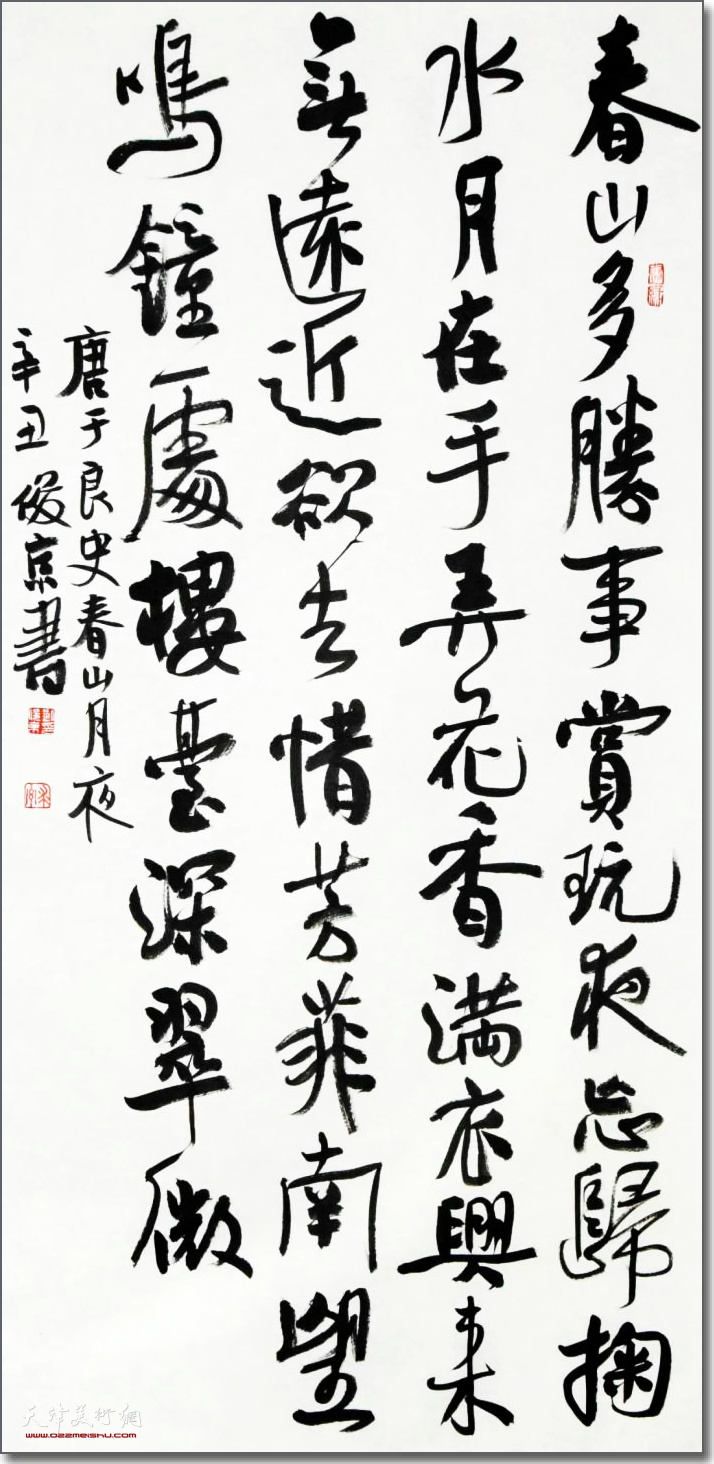 春山多勝事賞玩夜忘歸掬
水月在手弄花香滿衣興來
無遠近欲去惜芳菲南望
鳴鐘處樓臺深翠微
唐于良史春山月夜
辛丑俊京書
天津美術網
www.022meishu.com